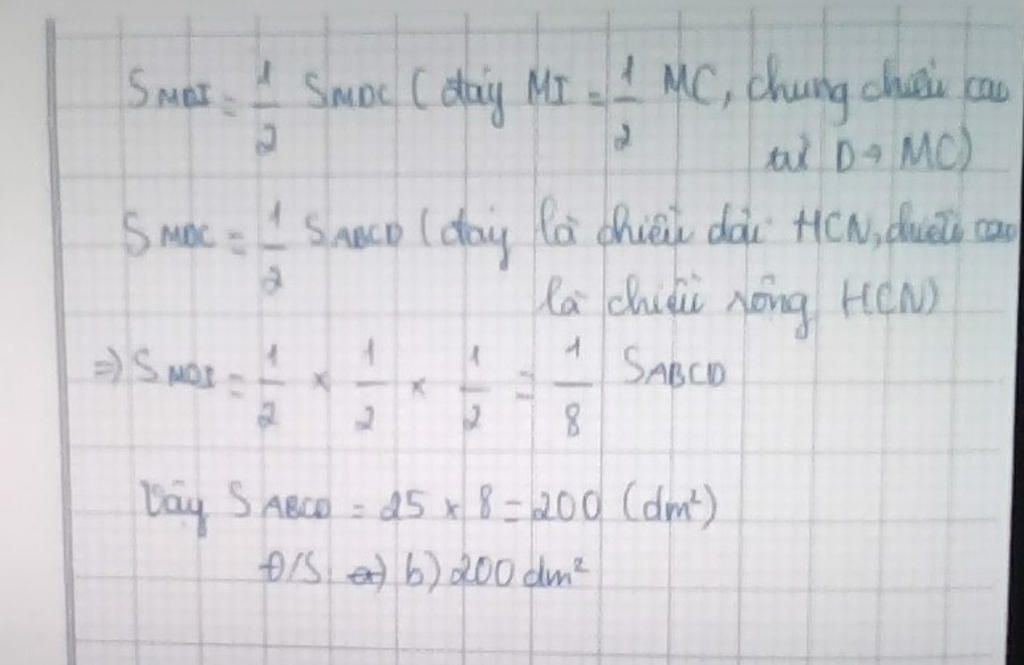 S MDI = 1/2 S MDC (đáy MI = 1/2 MC, chung chiều cao
từ D → MC)
S MDC = 1/2 S ABCD (đáy là chiều dài HCN, chiều cao
là chiều rộng HCN)
=> S MDI = 1/2 × 1/2 × 1/2 = 1/8 S ABCD
Vậy S ABCD = 25 × 8 = 200 (dm²)
Đ/S b) 200 dm²